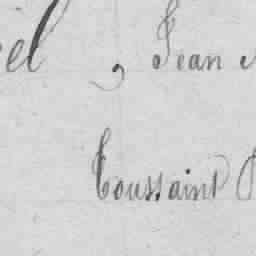 , Jean
Toussaint